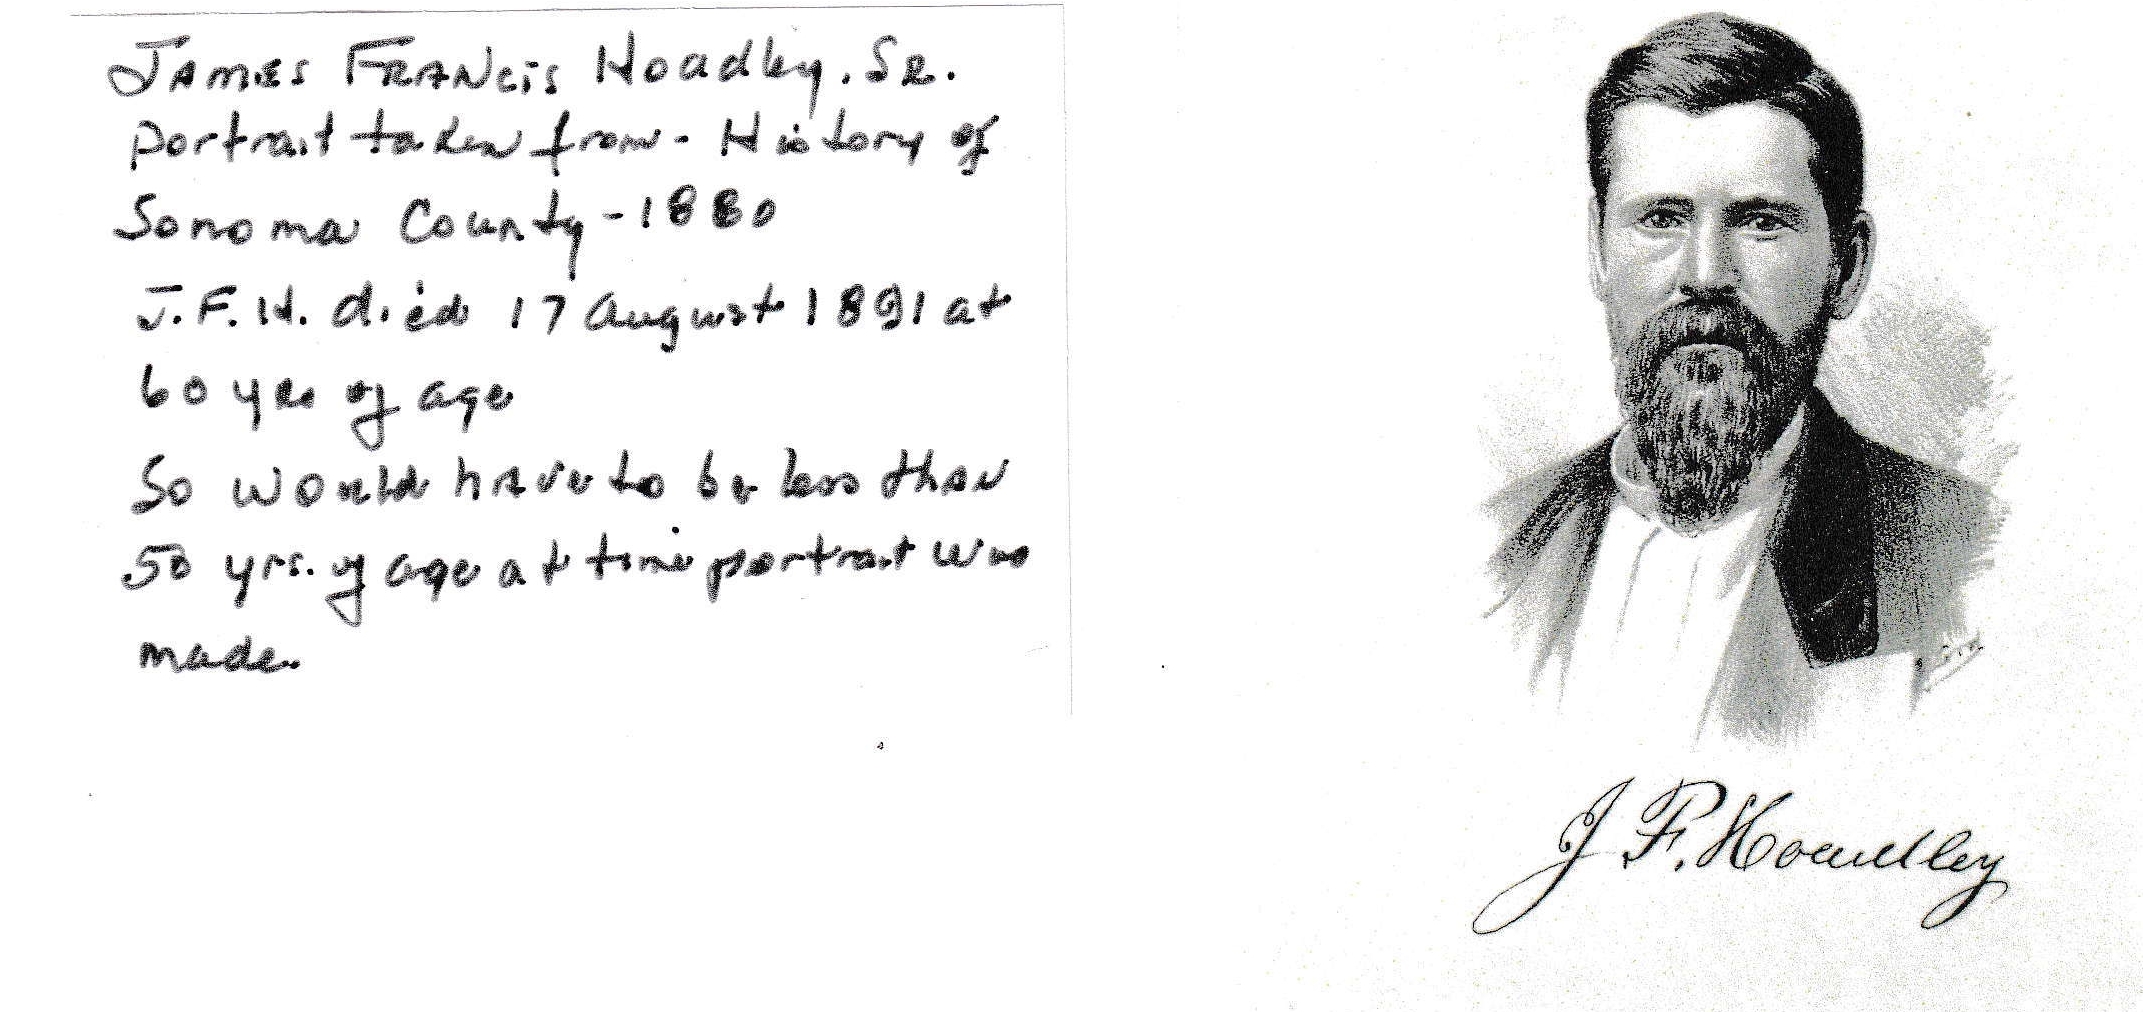 JAMES FRANCIS Hoadley, SR.
portrait taken from - History of
Sonoma County - 1880
J.F.H. died 17 August 1891 at
60 yrs of age
So would have to be less than
50 yrs. of age at time portrait was
made.
J. F. Hoadley